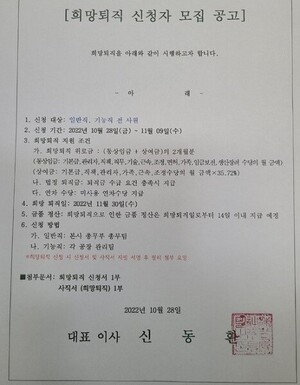 [희망퇴직 신청자 모집 공고]
희망퇴직을 아래와 같이 시행하고자 합니다.
- 아 래 -
1. 신청 대상: 일반직, 기능직 전 사원
2. 신청 기간: 2022년 10월 28일(금) ~ 11월 09일(수)
3. 희망퇴직 지원 조건
가. 희망퇴직 위로금 : (통상임금 + 상여금)의 2개월분
(통상임금: 기본급,관리자,직책,직무,기술,근속,조정,면허,가족,임금보전,생산장려 수당의 월 금액)
(상여금: 기본급,직책,관리자,가족,근속,조정수당의 월 금액×35.72%)
나. 법정 퇴직금: 퇴직금 수급 요건 충족시 지급
다. 연차 수당: 미사용 연차수당 지급
4. 희망 퇴직일: 2022년 11월 30일(수)
5. 금품 청산: 희망퇴직으로 인한 금품 청산은 희망퇴직일로부터 14일 이내 지급 예정
6. 신청 방법
가. 일반직: 본사 총무부 총무팀
나. 기능직: 각 공장 관리팀
*희망퇴직 신청 시 신청서 및 사직서 작성 후 원본 제출 요망
■첨부문서: 희망퇴직 신청서 1부
사직서 (희망퇴직) 1부
2022년 10월 28일
대표 이사 신 동 환